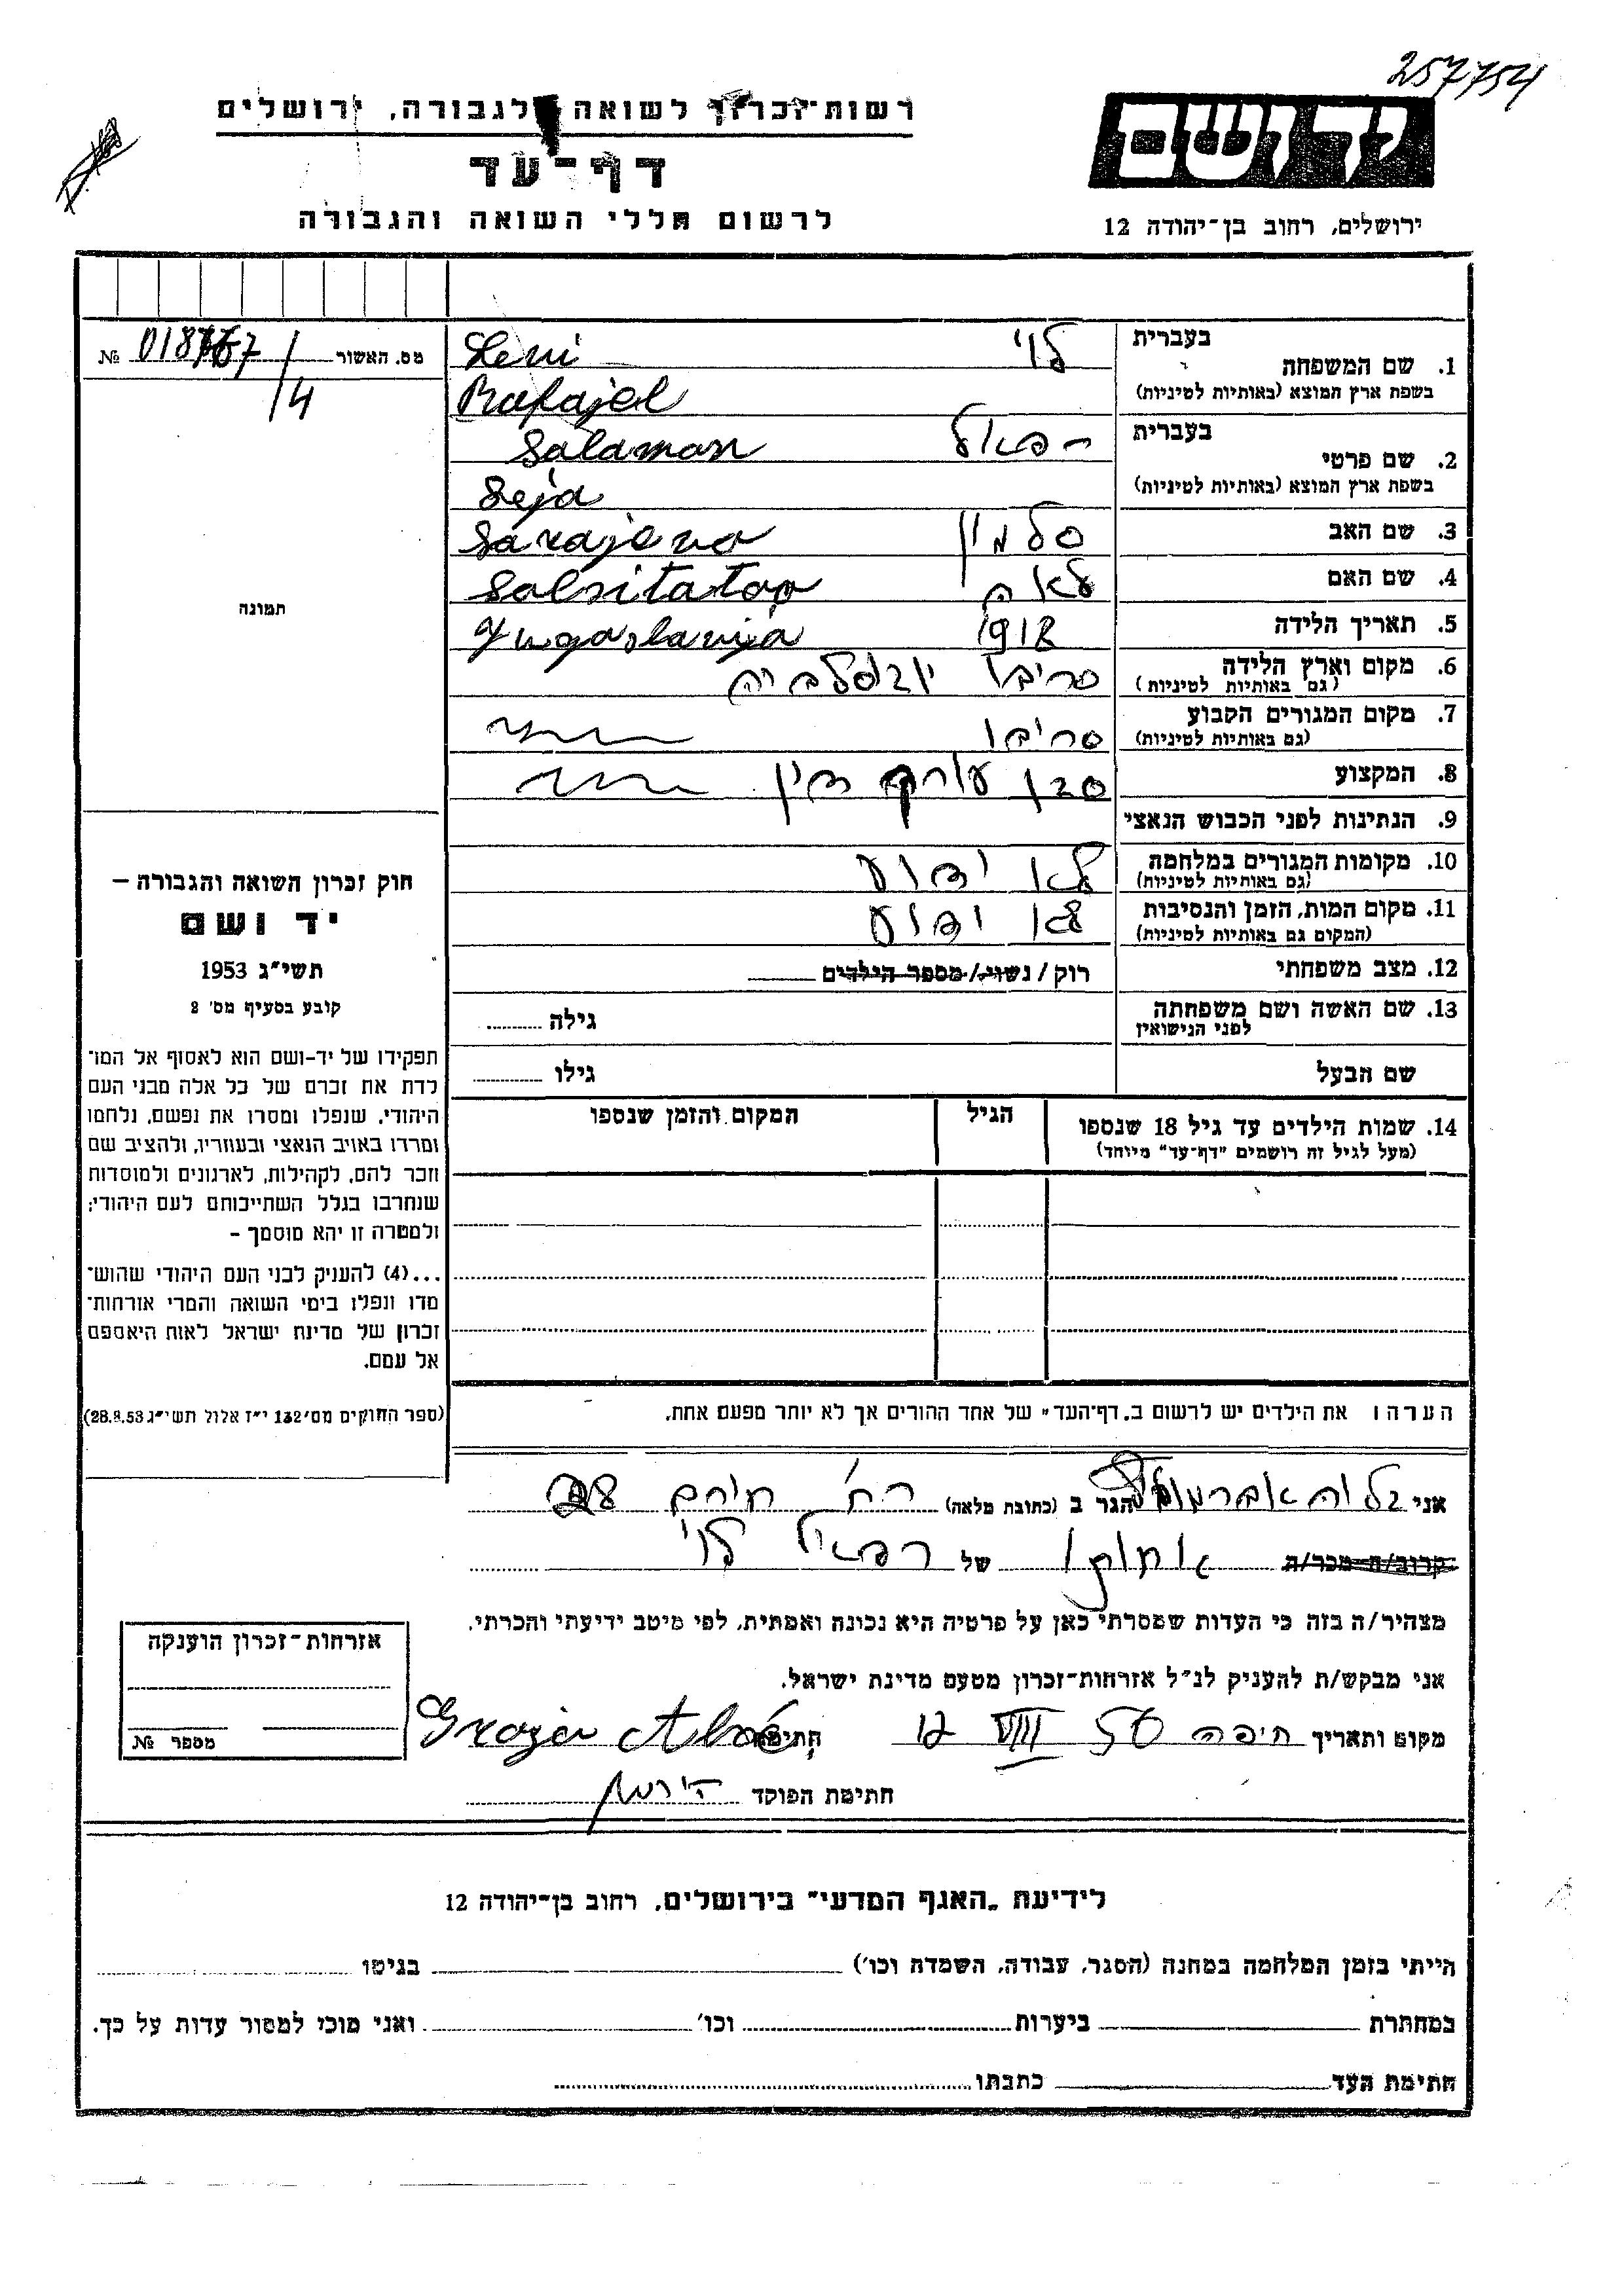 257754
רשות־זכרון לשואה ולגבורה, ירושלים
דף־עד
לרשום חללי השואה והגבורה
יד ושם
ירושלים, רחוב בן־יהודה 12
מס. האשור № /4
תמונה
בעברית
1. שם המשפחה לוי Levi
בשפת ארץ המוצא (באותיות לטיניות) Rafajel
בעברית
2. שם פרטי רפאל Salamon
בשפת ארץ המוצא (באותיות לטיניות) Leja
3. שם האב סלמון Sarajevo
4. שם האם לאה
5. תאריך הלידה 1918 Yugoslavija
6. מקום וארץ הלידה
(גם באותיות לטיניות)
7. מקום המגורים הקבוע
(גם באותיות לטיניות)
8. המקצוע סגן עורך דין
9. הנתינות לפני הכבוש הנאצי
10. מקומות המגורים במלחמה לא ידוע
(גם באותיות לטיניות)
11. מקום המות, הזמן והנסיבות לא ידוע
(המקום גם באותיות לטיניות)
12. מצב משפחתי רוק / נשוי / מספר הילדים
13. שם האשה ושם משפחתה גילה
לפני הנישואין
שם הבעל גילו
14. שמות הילדים עד גיל 18 שנספו הגיל המקום והזמן שנספו
(מעל לגיל זה רושמים "דף־עד" מיוחד)
חוק זכרון השואה והגבורה –
יד ושם
תשי"ג 1953
קובע בסעיף מס' 2
תפקידו של יד-ושם הוא לאסוף אל המו־
לדת את זכרם של כל אלה מבני העם
היהודי, שנפלו ומסרו את נפשם, נלחמו
ומרדו באויב הנאצי ובעוזריו, ולהציב שם
וזכר להם, לקהילות, לארגונים ולמוסדות
שנחרבו בגלל השתייכותם לעם היהודי;
ולמטרה זו יהא מוסמך –
...(4) להעניק לבני העם היהודי שהוש־
מדו ונפלו בימי השואה והמרי אזרחות־
זכרון של מדינת ישראל לאות היאספם
אל עמם.
(ספר החוקים מס' 132 י"ז אלול תשי"ג 28.8.53)
הערה: את הילדים יש לרשום ב„דף־העד" של אחד ההורים אך לא יותר מפעם אחת.
אני הגר ב (כתובת מלאה) רח'
קרוב/ה מכר/ה אחותו של רפאל לוי
מצהיר/ה בזה כי העדות שמסרתי כאן על פרטיה היא נכונה ואמתית, לפי מיטב ידיעתי והכרתי.
אני מבקש/ת להעניק לנ"ל אזרחות־זכרון מטעם מדינת ישראל.
מקום ותאריך חיפה 12 VIII 56 חתימה
חתימת הפוקד
אזרחות־זכרון הוענקה
מספר №
לידיעת „האגף המדעי" בירושלים, רחוב בן־יהודה 12
הייתי בזמן המלחמה במחנה (הסגר, עבודה, השמדה וכו') בגיטו
במחתרת ביערות וכו' ואני מוכן למסור עדות על כך.
חתימת העד כתבתו